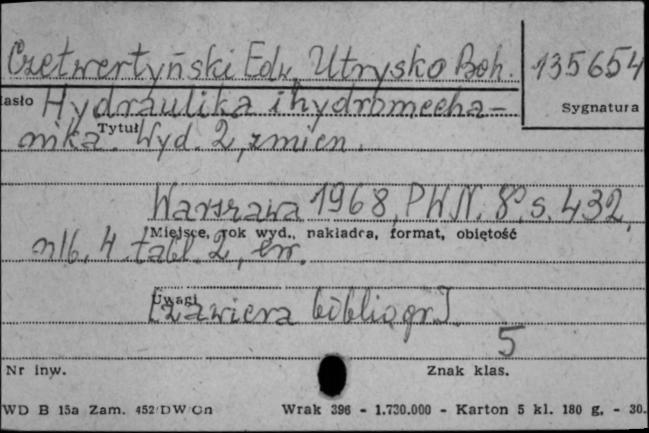 Czetwertyński Edw. Utrysko Boh. 135654
Hasło Hydraulika i hydromecha- Sygnatura
nika. Tytuł Wyd. 2, zmien.
Warszawa 1968, PWN. 8° s. 432,
Miejsce, rok wyd., nakładca, format, objętość
nlb. 4 tabl. 2, err.
Uwagi
[zawiera bibliogr.]
5
Nr inw. Znak klas.
WD B 15a Zam. 452/DW/Gn Wrak 396 - 1.730.000 - Karton 5 kl. 180 g. - 30.